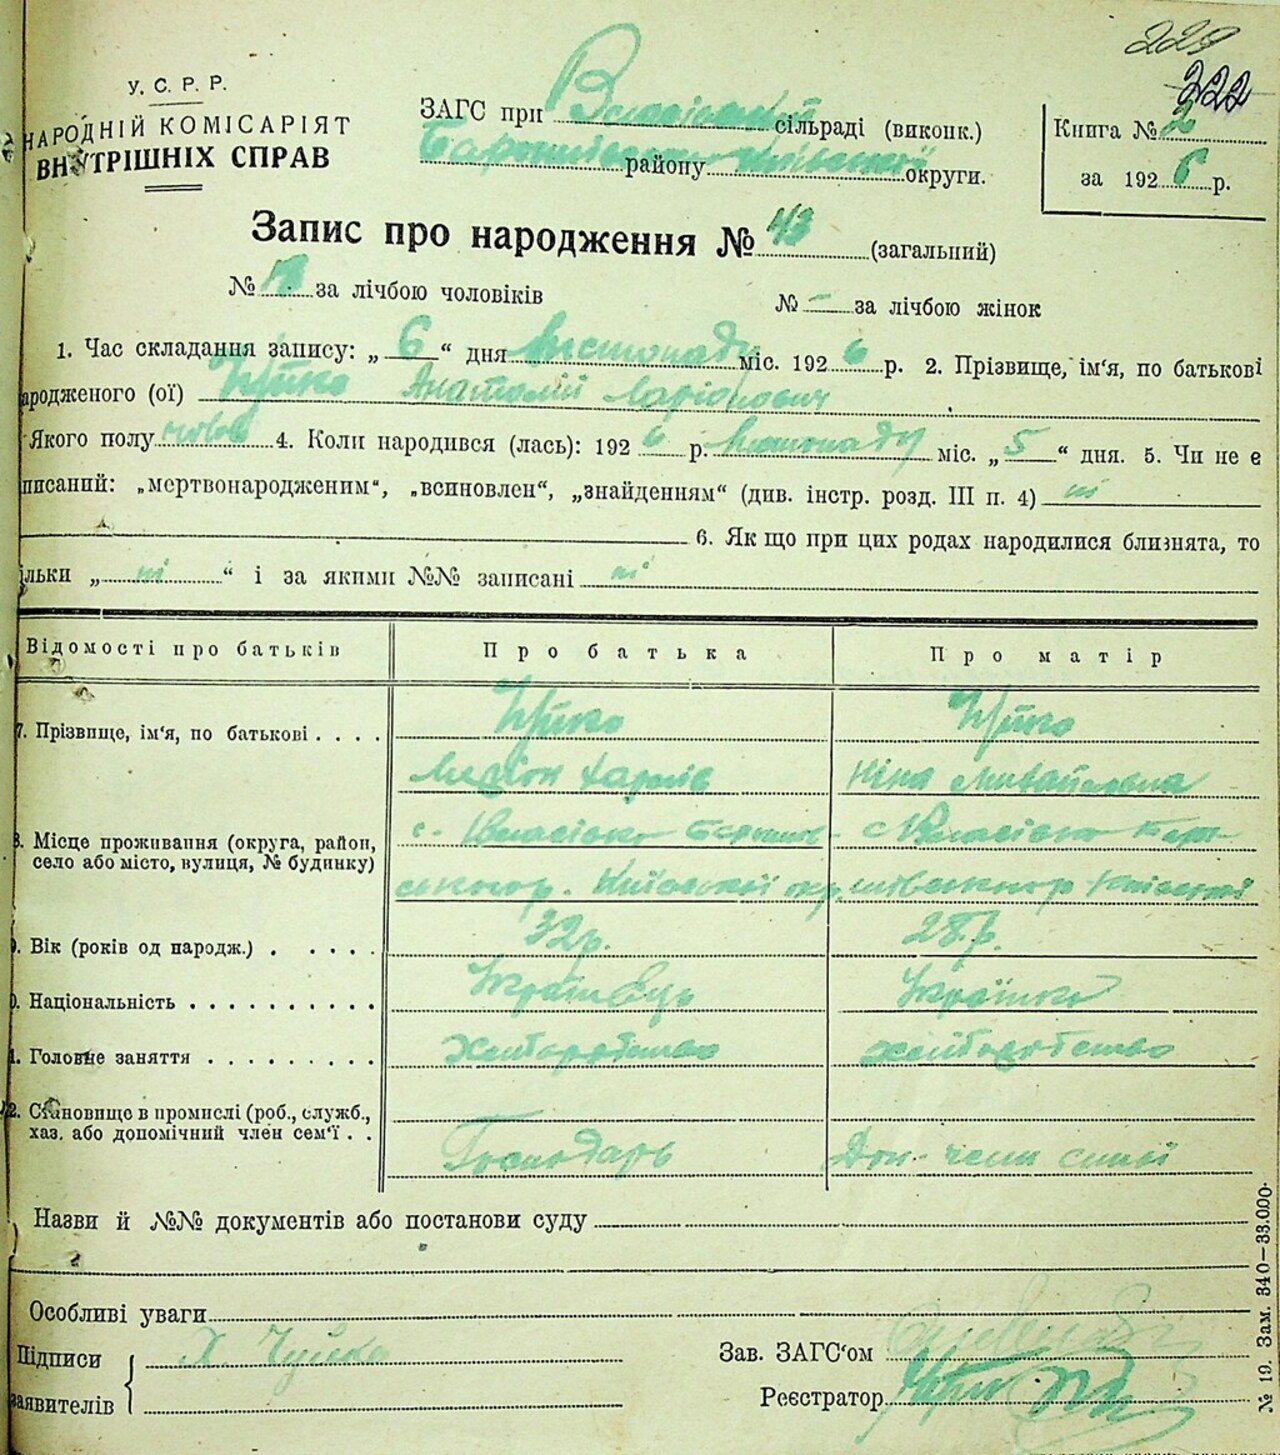 229
222
У. С. Р. Р.
НАРОДНІЙ КОМІСАРІЯТ
ВНУТРІШНІХ СПРАВ
ЗАГС при сільраді (виконк.)
району округи.
Книга № 2
за 1926 р.
Запис про народження № 43 (загальний)
№ за лічбою чоловіків
№ – за лічбою жінок
1. Час складання запису: „ 6 “ дня Листопаду міс. 1926 р. 2. Прізвище, ім'я, по батькові
ародженого (ої) Чуйко Анатолій Ларіонович
Якого полу чолов 4. Коли народився (лась): 1926 р. Листопаду міс. „ 5 “ дня. 5. Чи не є
писаний: „мертвонародженим“, „всиновлен“, „знайденням“ (див. інстр. розд. III п. 4) ні
6. Як що при цих родах народилися близнята, то
ільки „ ні “ і за якими №№ записані ні
Відомості про батьків Про батька Про матір
7. Прізвище, ім'я, по батькові . . . . Чуйко Чуйко
Ларіон Харолів Ніна Михайловна
8. Місце проживання (округа, район,
село або місто, вулиця, № будинку)
с.
Київської окр.
. Вік (років од народж.) . . . . . 32 р. 28 р.
. Національність . . . . . . . . . . Українець Українка
1. Головне заняття . . . . . . . . . Хліборобство хліборобство
2. Становище в промислі (роб., служб.,
хаз. або допомічний член сем'ї . . Господарь Доп. член сим'ї
Назви й №№ документів або постанови суду
Особливі уваги
Підписи Х. Чуйко
аявителів
Зав. ЗАГС'ом
Реєстратор
№ 19. Зам. 340—33.000.